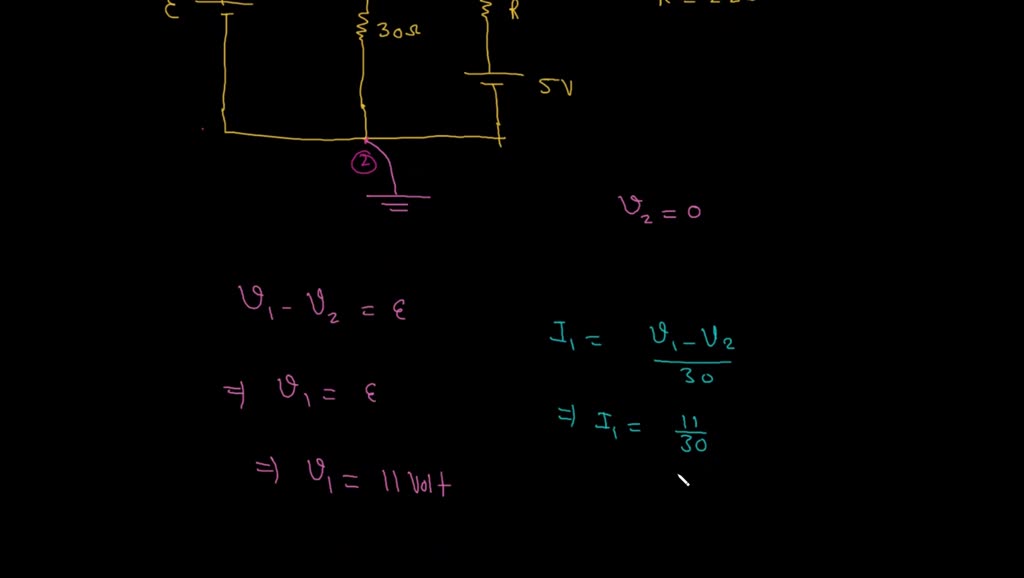 ε
30Ω
R
5V
②
V₂ = 0
V₁ - V₂ = ε
⇒ V₁ = ε
⇒ V₁ = 11 Volt
I₁ = V₁ - V₂ / 30
⇒ I₁ = 11 / 30